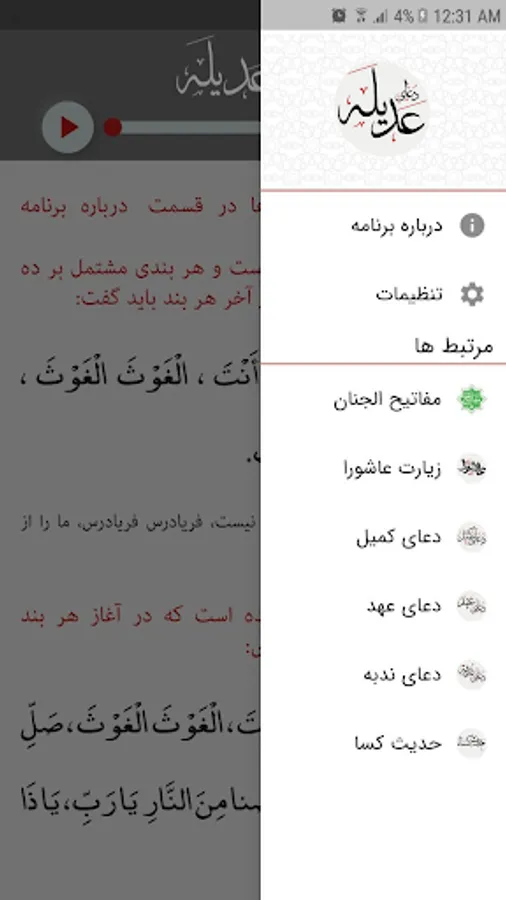 4% 12:31 AM
عدیله
دعای عدیله
ها در قسمت درباره برنامه
ست و هر بندی مشتمل بر ده
آخر هر بند باید گفت:
أَنْتَ ، الْغَوْثَ الْغَوْثَ ،
نیست، فریادرس فریادرس، ما را از
ده است که در آغاز هر بند
تَ، الْغَوْثَ الْغَوْثَ، صَلِّ
مِنَ النَّارِ یَا رَبِّ، یَا ذَا
درباره برنامه
تنظیمات
مرتبط ها
مفاتیح الجنان
زیارت عاشورا
دعای کمیل
دعای عهد
دعای ندبه
حدیث کسا